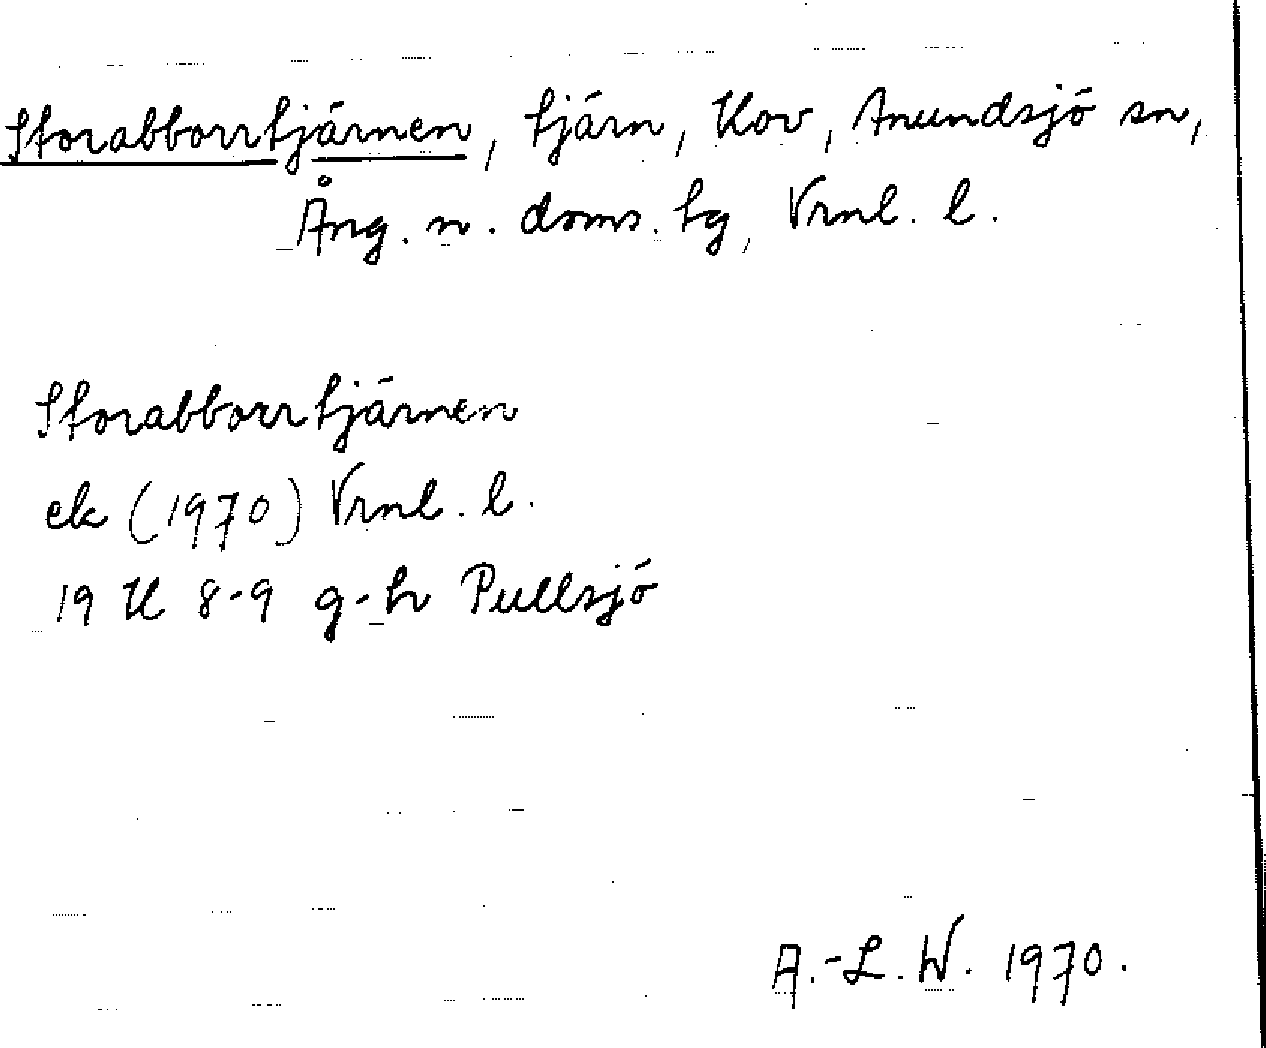 Storabborrtjärnen, tjärn, Kov, Anundsjö sn,
Ång. n. doms. tg, Vrnl. l.
Storabborrtjärnen
ek (1970) Vrnl. l.
19 H 8-9 g-h Pullsjö
A.-L. W. 1970.